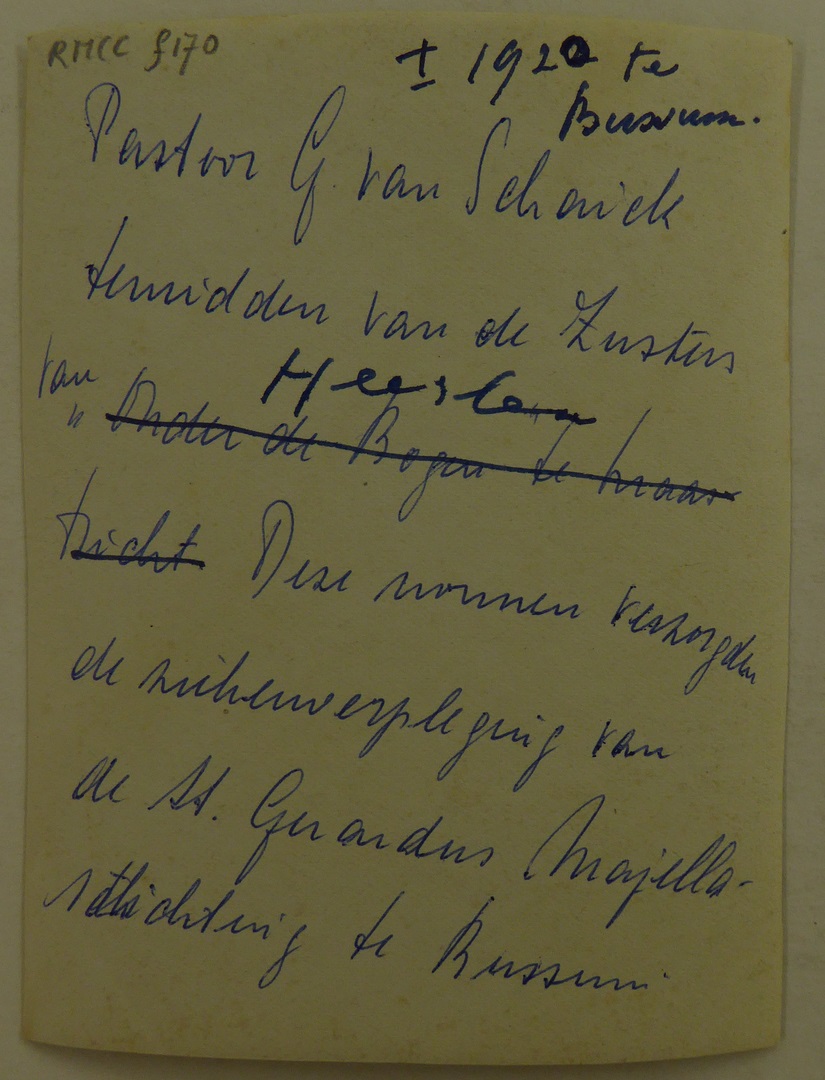 RMCC f170
± 1920 te
Bussum.
Pastoor G. van Schaick
temidden van de Zusters
van Heerlen
" Onder de Bogen" te Maas-
tricht. Deze nonnen verzorgden
de ziekenverpleging van
de St. Gerardus Majella-
stichting te Bussum.